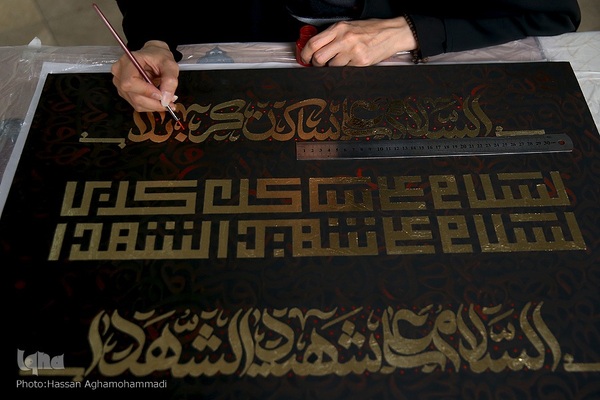 السلام علی ساکن کربلا
السلام علی ساکن کربلا
السلام علی شهید الشهدا
السلام علی شهید الشهدا
iqna
Photo:Hassan Aghamohammadi